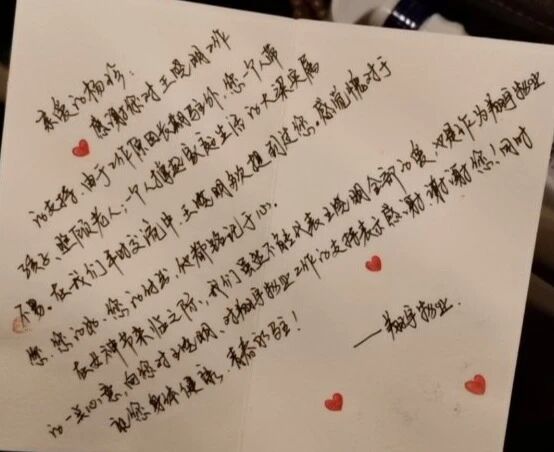 亲爱的杨珍:
感谢您对王晓明工作
的支持,由于工作原因长期驻外,您一个人带
孩子、照顾老人,一个人撑起家庭生活的大梁实属
不易。在我们平时交流中,王晓明数提到过您,感激愧对于
您,您的好、您的付出,他都铭记于心。
在女神节来临之际,我们虽然不能代表王晓明全部的爱,但是作为翔宇物业
的一点心意,向您对王晓明、对翔宇物业工作的支持表示感谢,谢谢您!同时
祝您身体健康,青春永驻!
——翔宇物业.